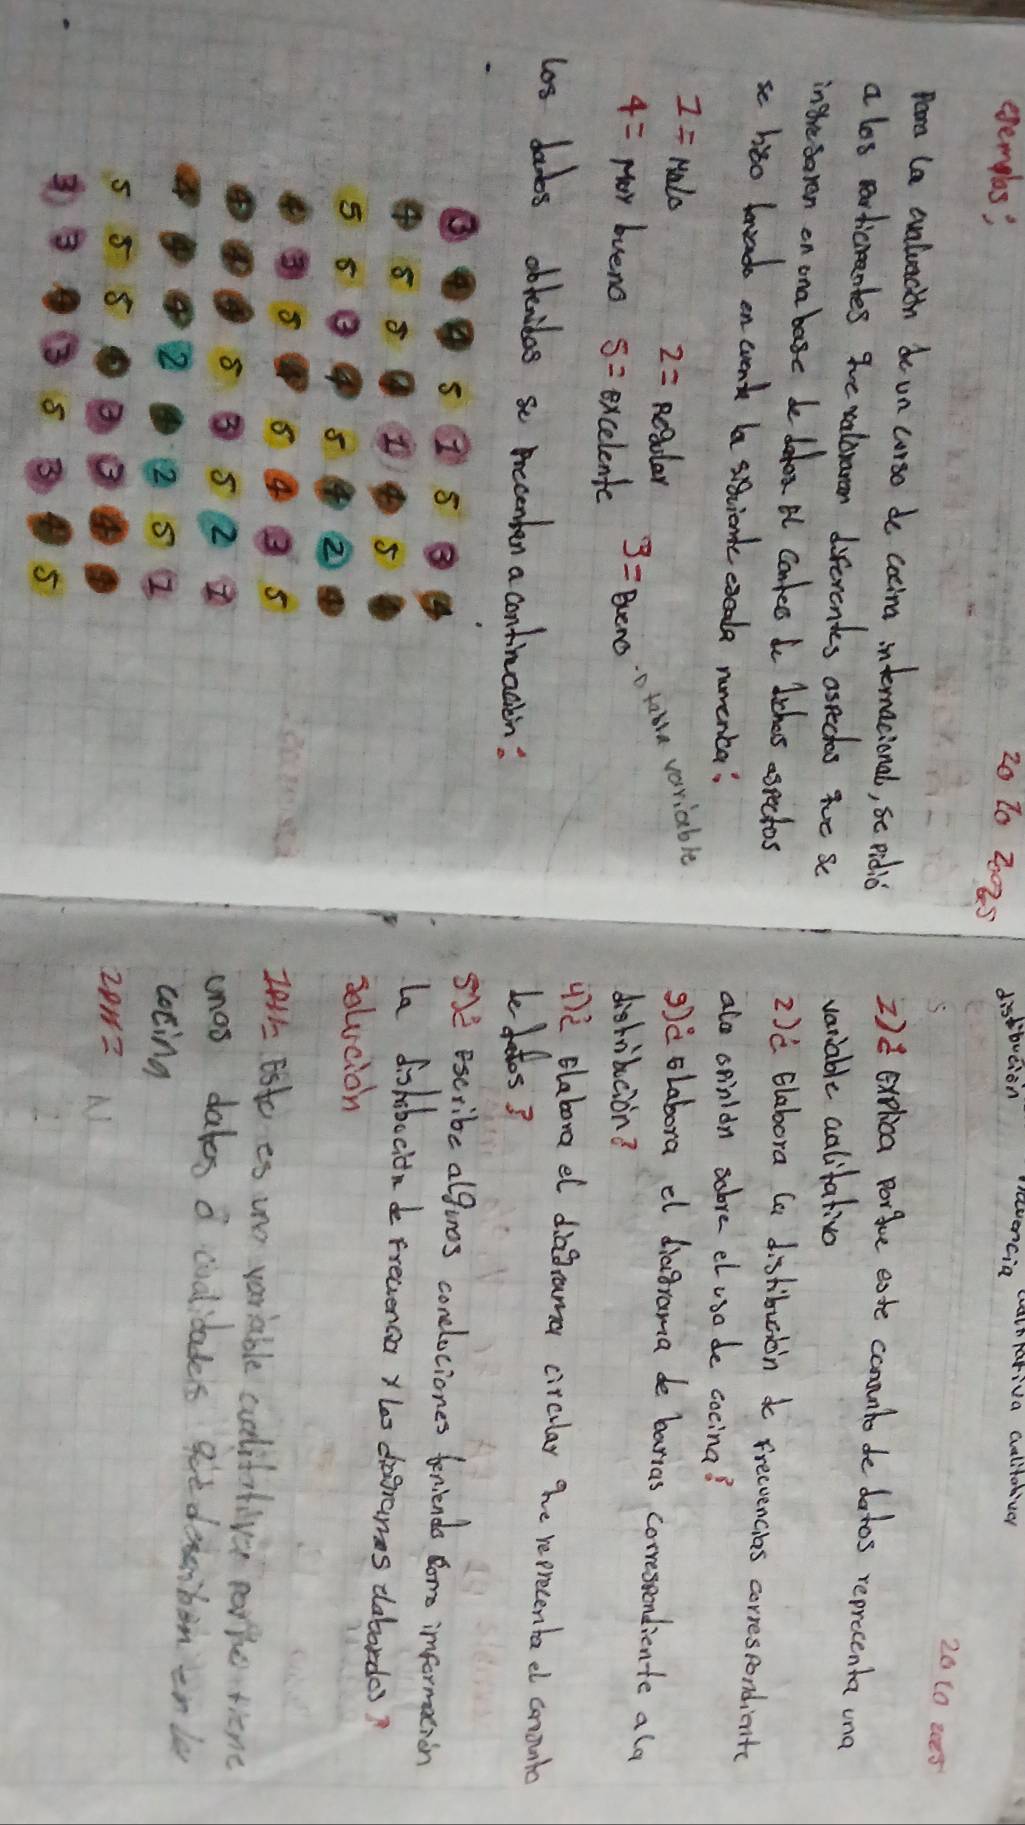 ejemplos; 20 10 2025
Para la evaluación de un curso de cocina internacional, se pidió
a los participantes que valoraran diferentes aspectos que se
ingresaron en una base de datos el conteo de dichos aspectos
se hizo en cuenta la siguiente escala numerica:
1 = Malo 2 = Regular 3 = Bueno → tabla variable
4 = Muy bueno 5 = excelente
Los datos obtenidos se precenten a continuación:
3 4 4 5 1 5 3 4
4 5 5 4 1 4 5 4
5 5 3 4 5 4 2 4
4 3 5 4 5 4 3 5
4 4 4 5 3 5 2 1
4 4 4 2 4 2 5 1
5 5 5 4 3 3 4 4
3 3 4 3 5 3 4 5
distribución cualitativa
20 10 2025
1)¿ explica porque este conjunto de datos reprecenta una
variable cualitativa
2)¿ Elabora la distribución de frecuencias correspondiente
ala opinión sobre el uso de cocina?
3)¿ Elabora el diagrama de barras correspondiente ala
distribución?
4)¿ Elabora el diagrama circular que reprecenta el conjunto
de datos?
5)¿ Escribe algunos concluciones teniendo como imformación
la distribución de frecuencia y los diagramas elaborados?
Solución
1PH= Este es una variable cualitativa porque tiene
unos datos o cualidades que describen en la
cocina
2PH= N